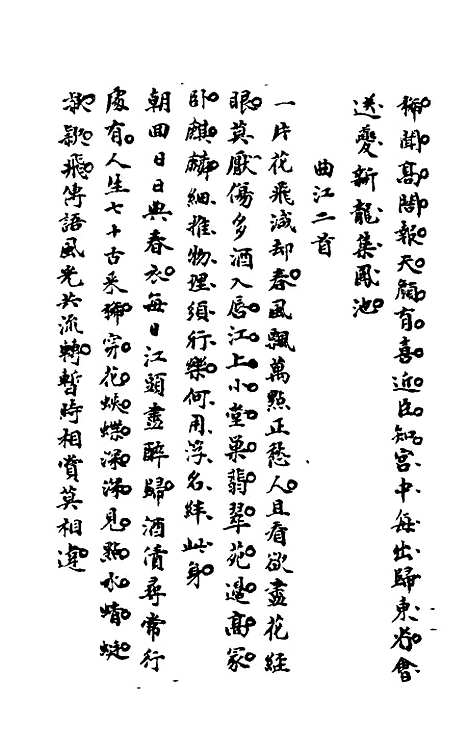 稀聞高閣報天顏有喜近臣知宮中每出歸東省會
送夔新龍集鳳池
曲江二首
一片花飛減却春風飄萬點正愁人且看欲盡花經
眼莫厭傷多酒入唇江上小堂巢翡翠苑邊高冢
臥麒麟細推物理須行樂何用浮名絆此身
朝回日日典春衣每日江頭盡醉歸酒債尋常行
處有人生七十古來稀穿花蛺蝶深深見點水蜻蜓
款款飛傳語風光共流轉暫時相賞莫相違